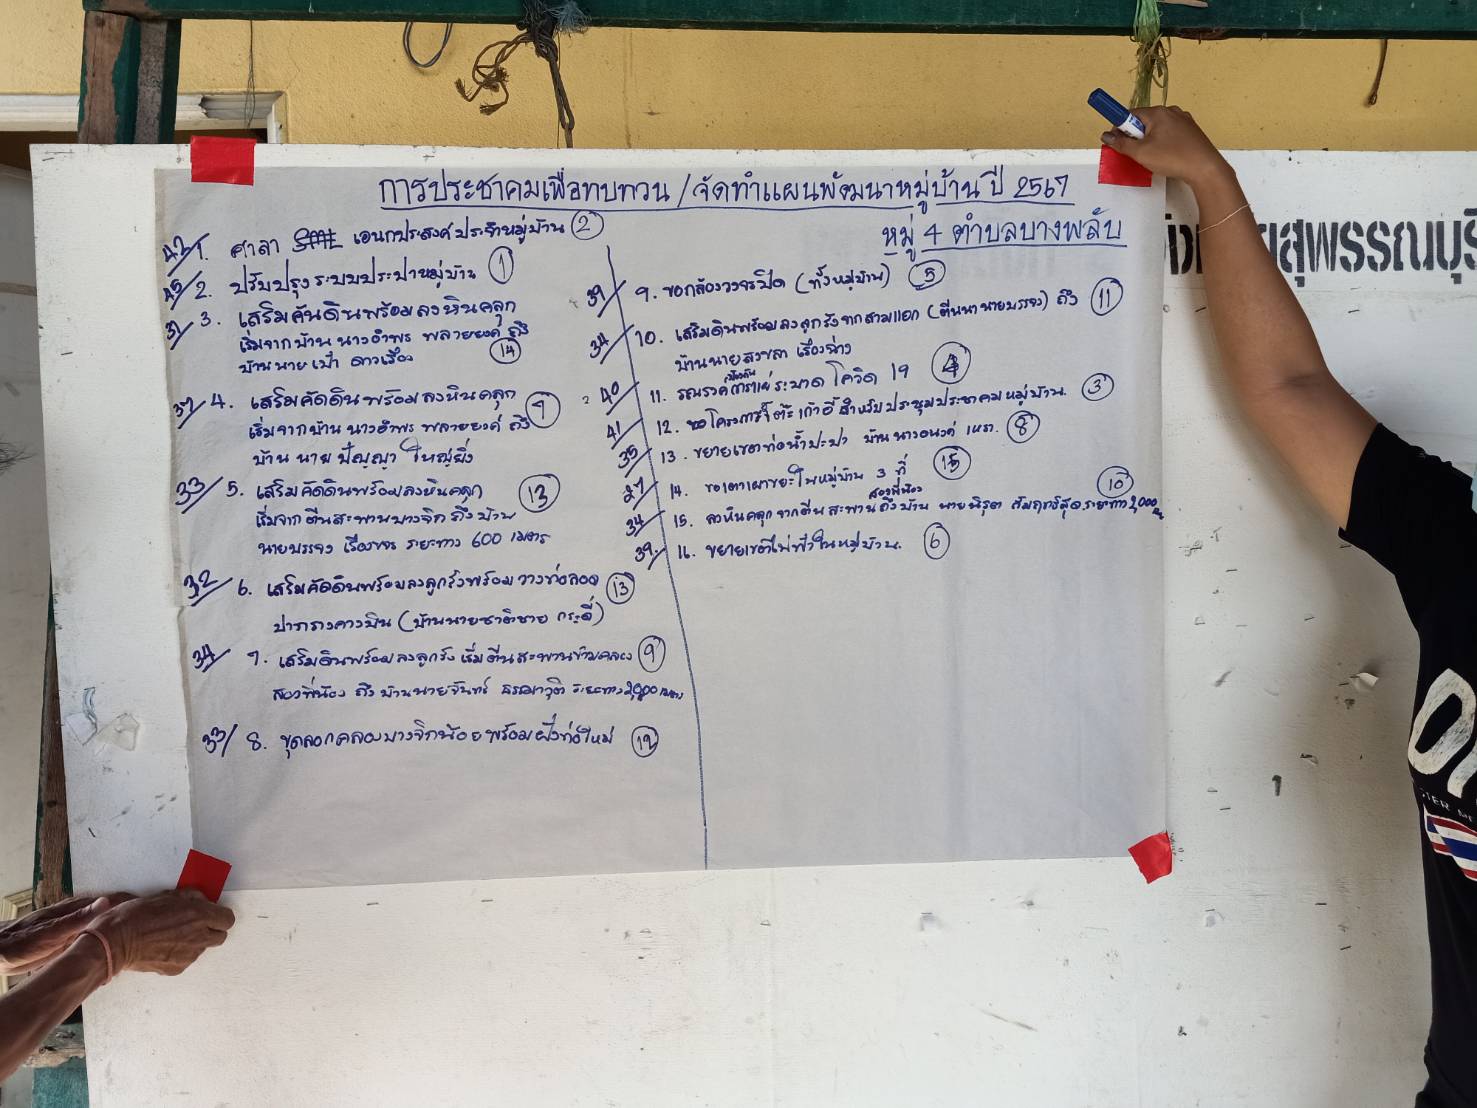 การประชาคมเพื่อทบทวน/จัดทำแผนพัฒนาหมู่บ้าน ปี 2567
หมู่ 4 ตำบลบางพลับ
42/ 1. ศาลา เอนกประสงค์ประจำหมู่บ้าน (2)
45/ 2. ปรับปรุงระบบประปาหมู่บ้าน (1)
31/ 3. เสริมคันดินพร้อมลงหินคลุก
เริ่มจากบ้าน นางอำพร พลายยงค์ ถึง
บ้านนายเป้า ดาวเรือง (14)
37/ 4. เสริมคัดดินพร้อมลงหินคลุก (7)
เริ่มจากบ้าน นางอำพร พลายยงค์ ถึง
บ้าน นาย ปัญญา ใหญ่ยิ่ง
33/ 5. เสริมคัดดินพร้อมลงหินคลุก (13)
เริ่มจากตีนสะพานบางจิก ถึงบ้าน
นายบรรจง ระยะทาง 600 เมตร
32/ 6. เสริมคัดดินพร้อมลงลูกรังพร้อมวางท่อลอด (13)
(บ้านนายชาติชาย กระดี่)
34/ 7. เสริมดินพร้อมลงลูกรัง เริ่มตีนสะพานข้ามคลอง (9)
สองพี่น้อง ถึง บ้านนายจันทร์ ระยะทาง 2,000 เมตร
33/ 8. ขุดลอกคลองบางจิกน้อยพร้อมฝังท่อใหม่ (12)
39/ 9. ขอกล้องวงจรปิด (ทั้งหมู่บ้าน) (5)
34/ 10. เสริมดินพร้อมลงลูกรังจากสามแยก (ตีนนานายบรรจง) ถึง (11)
บ้านนายสงขลา
40/ 11. รณรงค์ป้องกันการแพร่ระบาด โควิด 19 (4)
41/ 12. ขอโครงการโต๊ะเก้าอี้สำหรับประชุมประชาคมหมู่บ้าน. (3)
35/ 13. ขยายเขตท่อน้ำประปา บ้านนางอนงค์ (8)
27/ 14. ขอเตาเผาขยะในหมู่บ้าน 3 ที่ (15)
34/ 15. ลงหินคลุกจากตีนสะพานสองพี่น้องถึงบ้าน ระยะทาง 2,000 ม. (10)
39/ 16. ขยายเขตไฟฟ้าในหมู่บ้าน. (6)
สุพรรณบุรี